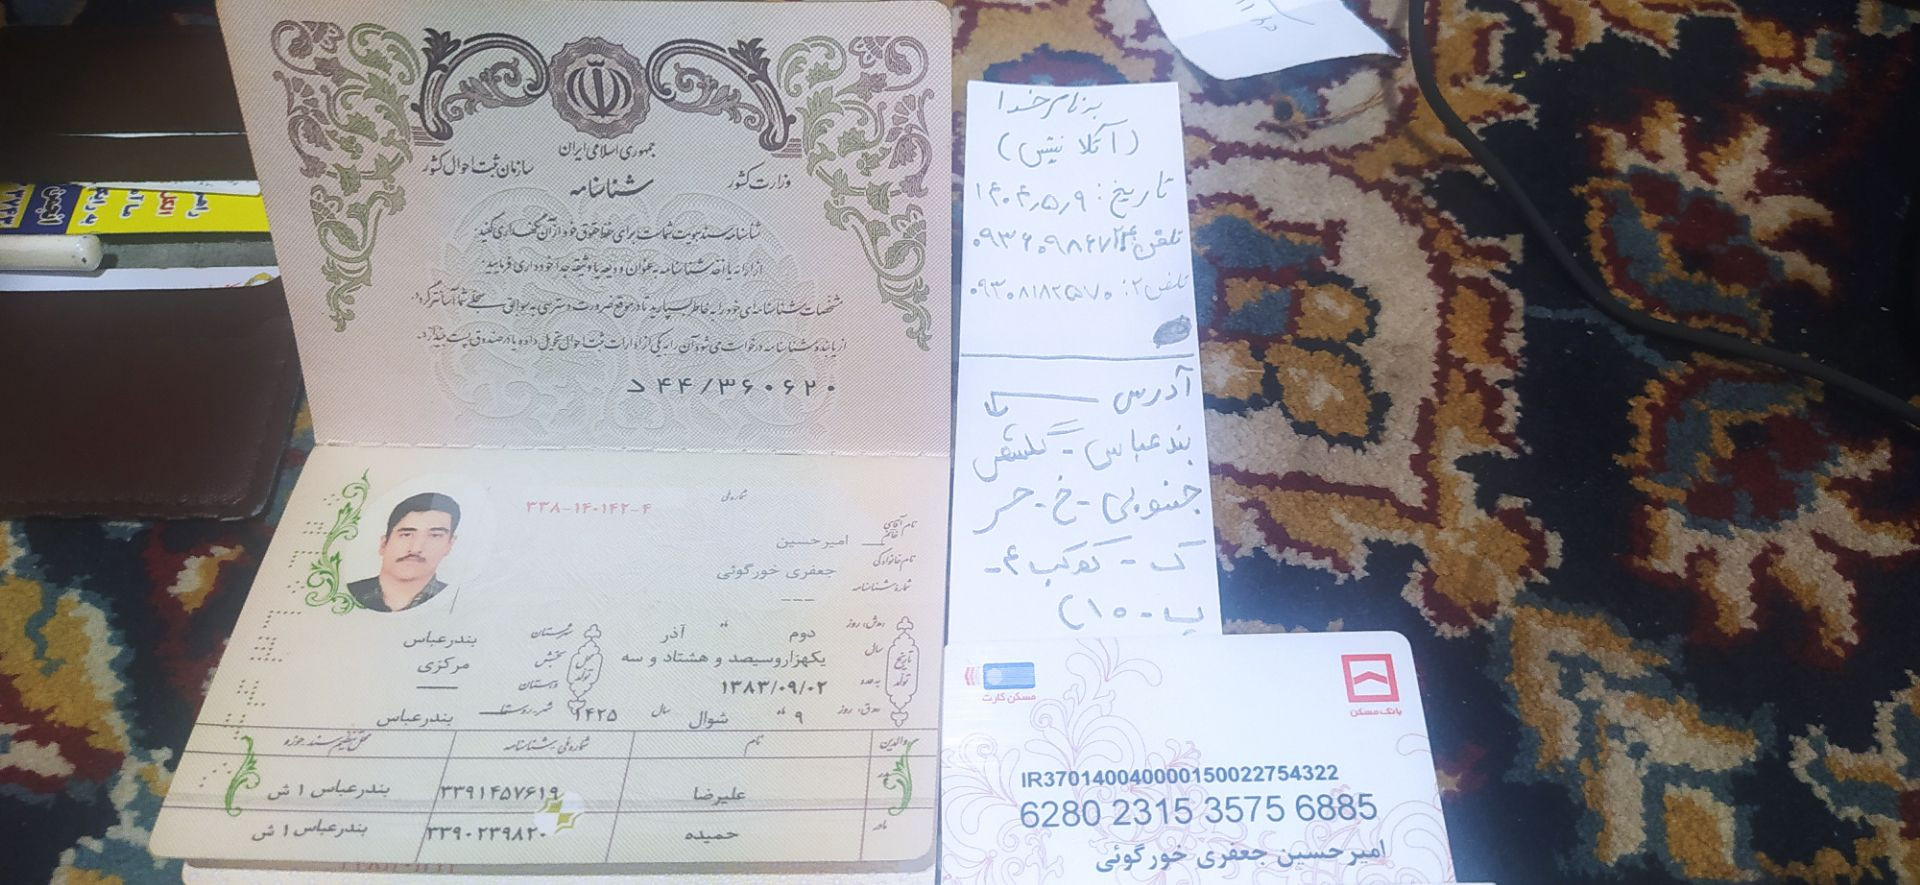 جمهوری اسلامی ایران
وزارت کشور
سازمان ثبت احوال کشور
شناسنامه
شناسنامه سند هویت شماست برای حفظ حقوق خود از آن نگهداری کنید.
از ارائه یا اخذ شناسنامه به عنوان ودیعه یا وثیقه جداً خودداری فرمایید.
مشخصات شناسنامه‌ای خود را به خاطر بسپارید تا در موقع ضرورت دسترسی به سوابق سجلی شما آسانتر گردد.
از یابنده شناسنامه درخواست می‌شود آن را به یکی از ادارات ثبت احوال تحویل داده یا در صندوق پست بیندازد.
د ۴۴/۳۶۰۶۲۰
شماره ملی
۳۳۸-۱۴۰۱۴۲-۴
نام آقای / خانم
امیرحسین
نام خانوادگی
جعفری خورگوئی
شماره شناسنامه
---
تاریخ تولد
روز دوم ماه آذر
سال یکهزاروسیصد و هشتاد و سه
۱۳۸۳/۰۹/۰۲
روز ۹ ماه شوال سال ۱۴۲۵
محل تولد
شهرستان بندرعباس
بخش مرکزی
دهستان —
شهر-روستا بندرعباس
والدین نام شماره ملی-شناسنامه محل تنظیم سند-حوزه
پدر علیرضا ۳۳۹۱۴۵۷۶۱۹ بندرعباس ۱ ش
مادر حمیده ۳۳۹۰۲۳۹۸۲۰ بندرعباس ۱ ش
بنام خدا
تاریخ: ۱۴۰۴٫۵٫۹
تلفن ۲: ۰۹۳۰۸۱۸۲۵۷۰
آدرس
بندعباس - گلشهر
جنوبی - خ - حر
ک - کوکب ۴ -
پ - ۱۵)
مسکن کارت
بانک مسکن
IR370140040000150022754322
6280 2315 3575 6885
امیرحسین جعفری خورگوئی